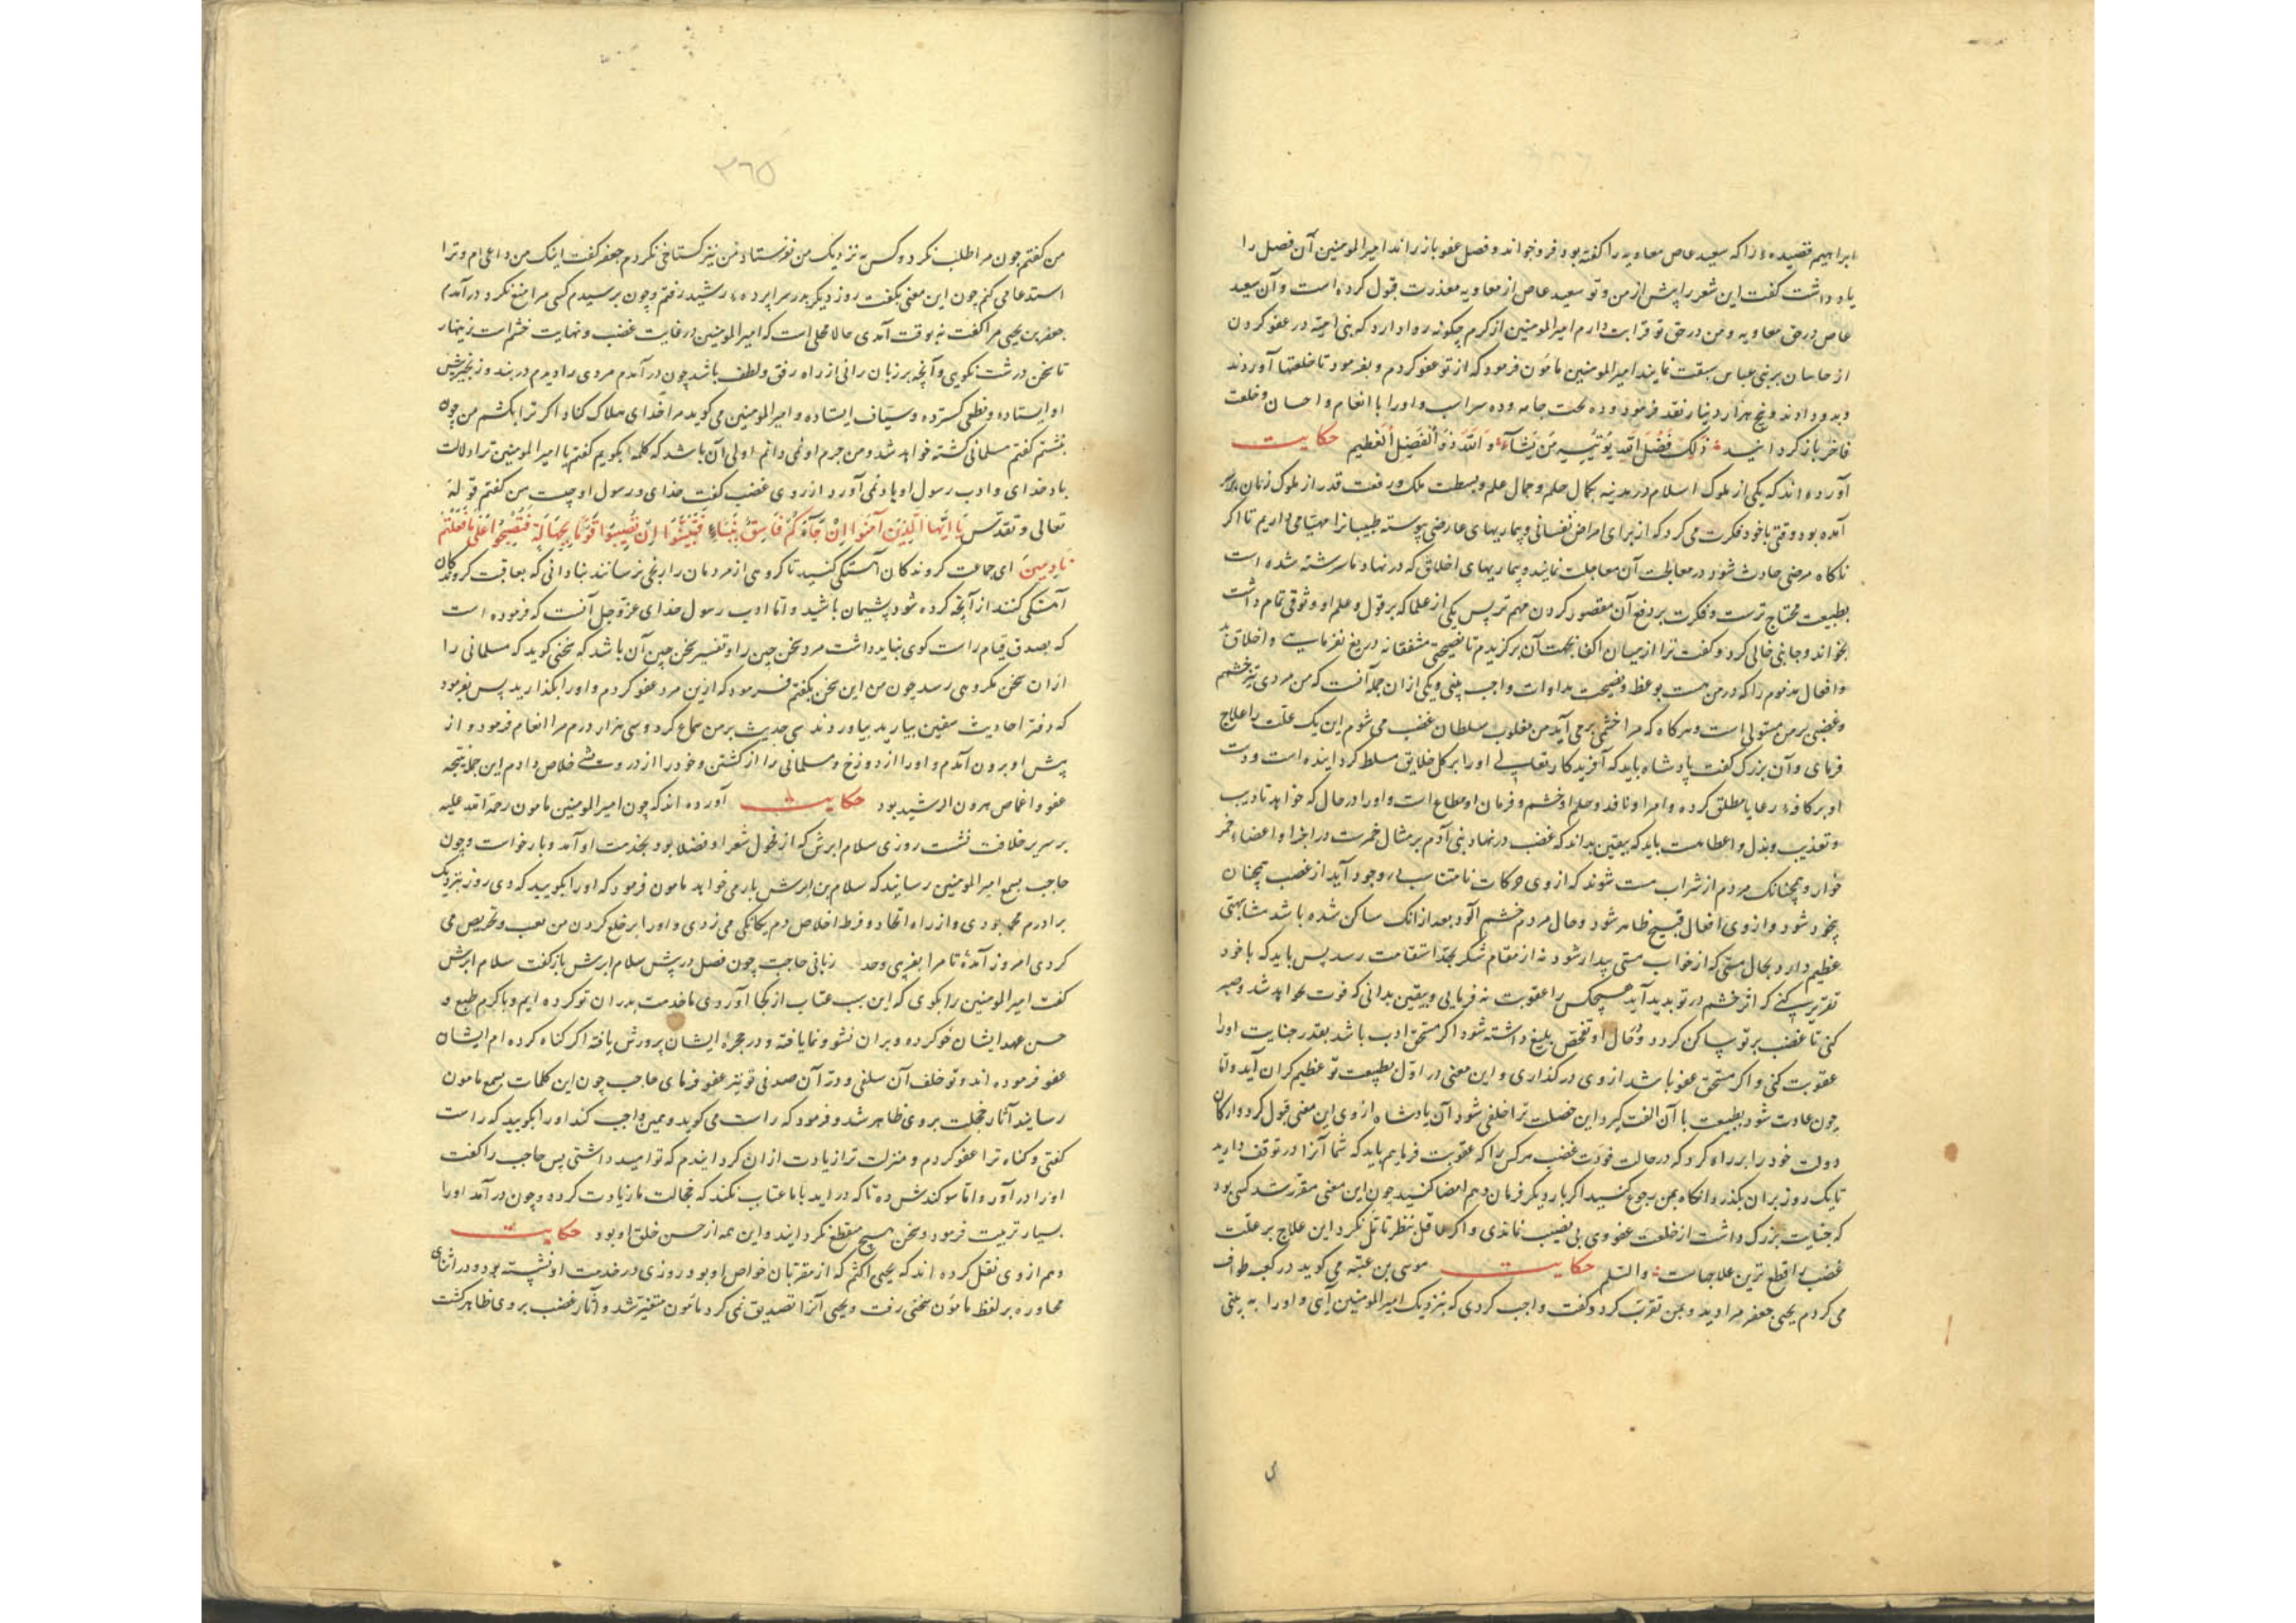 ابراهیم قصیده را که سعید عاص معاویه را گفته بود فروخواند و فصل عفو باز راند امیرالمومنین آن فصل را
یاد داشت کفت این شعر را پیش از من و تو سعید عاص از معاویه معذرت قبول کرده است و آن سعید
عاص در حق معاویه و من در حق تو قرابت دارم امیرالمومنین از کرم چکونه روا دارد که بنی امیه در عفو کردن
از جانیان بر بنی عباس سبقت نمایند امیرالمومنین مامون فرمود که از تو عفو کردم و بفرمود تا خلعتها آوردند
و بدو دادند و پنج هزار دینار نقد فرمود و ده تخت جامه و ده سر اسب و او را با انعام و احسان و خلعت
فاخر باز کردانید ذلِک فَضْلُ اللهِ یُؤتِیهِ مَن یَشَآءُ وَ اللهُ ذُو الْفَضْلِ الْعَظِیم حکایت
آورده‌اند که یکی از ملوک اسلام در مدینه بکمال حلم و جمال علم و بسطت ملک و رفعت قدر از ملوک زمان برسر
آمده بود وقتی با خود فکرت می کرد که از برای امراض نفسانی و بیماریهای عارضی پیوسته طبیبانرا مهیا می داریم تا اگر
ناکاه مرضی حادث شود در معالجت آن معاجلت نمایند و بیماریهای اخلاق که در نهاد ما سرشته شده است
بطبیعت محتاج ترست و فکرت بر دفع آن مقصور کردن مهم تر پس یکی از علما که بر قول و علم او وثوقی تمام داشت
بخواند و جایی خالی کرد و کفت ترا از میان اکفا بجهت آن برکزیدم تا نصیحتی مشفقانه دریغ نفرمایی و اخلاق بد
و افعال مذموم را که در من هست بوعظ و نصیحت مداوات واجب بینی و یکی از ان جمله آنست که من مردی تیز خشمم
و غضبی بر من مستولی است و هرکاه که مرا خشمی برمی آید من مغلوب سلطان غضب می شوم این یک علت را علاج
فرمای و آن بزرک کفت پادشاه باید که آفریدکار تعالی او را بر کل خلایق مسلط کردانیده است و دست
او بر کافه رعایا مطلق کرده و امر او نافذ و حلم او خشم و فرمان او مطاع است و او را در حال که خواهد تادیب
و تعذیب و بذل و اعطا هست باید که بیقین بداند که غضب در نهاد بنی آدم بر مثال خمرست در اجزا و اعضاء خمر
خوار و همچنانک مردم از شراب مست شوند که از وی حرکات نامتناسب در وجود آید از غضب همچنان
بیخود شود و از وی افعال قبیح ظاهر شود و حال مردم خشم آلود بعد از انک ساکن شده باشد مشابهتی
عظیم دارد بحال مستی که از خواب مستی بیدار شود نه از مقام سکر بحد استقامت رسد پس باید که با خود
تقریر کنی که اثر خشم در تو بدید آید هیچکس را عقوبت نه فرمایی و بیقین بدانی که فوت نخواهد شد و صبر
کنی تا غضب بر تو ساکن کردد و حال او تفحص بلیغ داشته شود اکر مستحق ادب باشد بقدر جنایت او را
عقوبت کنی و اکر مستحق عفو باشد از وی درکذاری و این معنی در اول بطبیعت تو عظیم کران آید و اما
چون عادت شود بطبیعت با آن الفت کیرد این خصلت ترا خلقی شود آن پادشاه از وی این معنی قبول کرد و ارکان
دولت خود را بر راه کرد که در حالت فورت غضب هر کس را که عقوبت فرمایم باید که شما آنرا در توقف دارید
تا یک روز بران بکذرد انکاه بمن رجوع کنید اکر بار دیکر فرمان دهم امضا کنید چون این معنی مقرر شد کسی بود
که جنایت بزرک داشت از خلعت عفو وی بی نصیب نماندی و اکر عاقل بنظر تامل نکرد این علاج بر علت
غضب را قطع ترین علاجهاست والسلم حکایت موسی بن عتبه می کوید در کعبه طواف
می کردم یحیی جعفر مرا دید و بمن تقرب کرد و کفت واجب کردی که بنزدیک امیرالمومنین آیی و او را به بینی
۳۶۵
من کفتم چون مرا طلب نکرد و کس به نزدیک من نفرستاد من نیز کستاخی نکردم جعفر کفت اینک من داعی ام و ترا
استدعا می کنم چون این معنی بکفت روز دیکر بدر سراپرده رشید رفتم و چون برسیدم کسی مرا منع نکرد درآمدم
جعفر بن یحیی مرا کفت نه بوقت آمدی حالا محلی است که امیرالمومنین در غایت غضب و نهایت خشم است زینهار
تا سخن درشت نکویی و آنچه بر زبان رانی از راه رفق و لطف باشد چون درآمدم مردی را دیدم در بند و زنجیر پیش
او ایستاده و نطعی کسترده و سیاف ایستاده و امیرالمومنین می کوید مرا خدای هلاک کناد اکر ترا نکشم من چون
بنشستم کفتم مسلمانی کشته خواهد شد و من جرم او نمی دانم اولی آن باشد که کلمه بکویم کفتم یا امیرالمومنین ترا دلالت
یاد خدای و ادب رسول او یاد نمی آورد از روی غضب کفت خدای و رسول او چیست من کفتم قوله
تعالی و تقدس یَا اَیُّهَا الَّذِینَ آمَنُوا اِنْ جَآءَکُمْ فَاسِقٌ بِنَبَاءٍ فَتَبَیَّنُوا اَنْ تُصِیبُوا قَوْمًا بِجَهَالَةٍ فَتُصْبِحُوا عَلَی مَا فَعَلْتُمْ
نَادِمِینَ ای جماعت کروندکان آهستکی کنید تا کروهی از مردمان را رنجی نرسانند بنادانی که بعاقبت کروندکان
آهستکی کنند از آنچه کرده شود پشیمان باشید و اما ادب رسول خدای عز و جل آنست که فرموده است
که بصدق قیام راست کوی نباید داشت مرد سخن چین را و تفسیر سخن چین آن باشد که سخنی کوید که مسلمانی را
از ان سخن مکروهی رسد چون من این سخن بکفتم فرمود که ازین مرد عفو کردم و او را بکذارید پس بفرمود
که دفتر احادیث مغین بیارید بیاوردند سی حدیث بر من سماع کرد و سی هزار درم مرا انعام فرمود و از
پیش او برون آمدم و او را از دوزخ و مسلمانی را از کشتن و خود را از درویشی خلاص دادم این جمله نتیجه
عفو و اغماض هرون الرشید بود حکایت آورده اند که چون امیرالمومنین مامون رحمة الله علیه
بر سریر خلافت نشست روزی سلام ابرش که از فحول شعرا و فضلا بود بخدمت او آمد و بار خواست و چون
حاجب بسمع امیرالمومنین رسانید که سلام بن ابرش بار می خواهد مامون فرمود که او را بکویید که دی روز بنزدیک
برادرم محمد بودی و از راه اتحاد و فرط اخلاص دم یکانکی می زدی و او را بر خلع کردن من تعب و تحریص می
کردی امروز آمدۀ تا مرا بفریبی وحد زبانی حاجب چون فصل در پیش سلام ابرش بازکفت سلام ابرش
کفت امیرالمومنین را بکوی که این سبب عتاب از کجا آوردی ما خدمت پدران تو کرده ایم و با کرم طبع و
حسن عهد ایشان خو کرده و بران نشو و نما یافته و در حجرۀ ایشان پرورش یافته اکر کناه کرده ام ایشان
عفو فرموده اند و تو خلف آن سلفی و در آن صدفی تو نیز عفو فرمای حاجب چون این کلمات بسمع مامون
رسانید آثار خجلت بر وی ظاهر شد و فرمود که راست می کوید و همین واجب کند او را بکویید که راست
کفتی و کناه ترا عفو کردم و منزلت ترا زیادت از ان کردانیدم که تو امید داشتی پس حاجب را کفت
او را درآور و اما سوکندش ده تا که دراید با ما عتاب نکند که خجالت ما زیادت کردد و چون درآمد او را
بسیار تربیت فرمود و سخن هیچ منقطع نکردانید و این همه از حسن خلق او بود حکایت
و هم از وی نقل کرده اند که یحیی اکثم که از مقربان خواص او بود روزی در خدمت او نشسته بود و در اثنای
محاوره بر لفظ مامون سخنی رفت و یحیی آنرا تصدیق نمی کرد مامون متغیر شد و آثار غضب بر وی ظاهر کشت